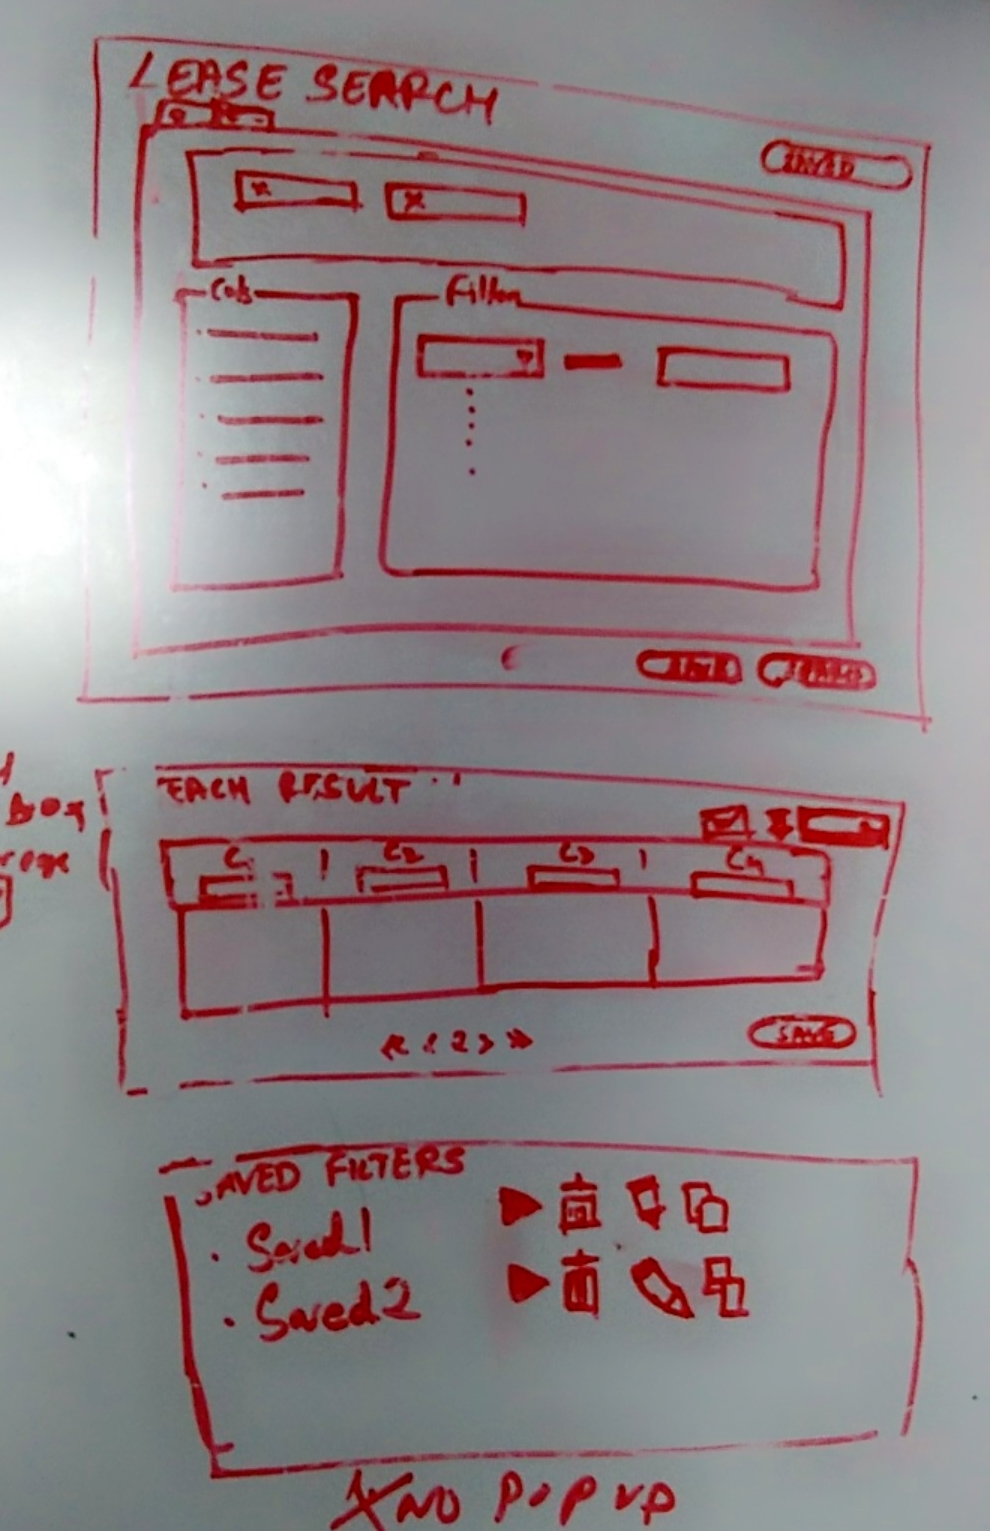 LEASE SEARCH
SAVED
x
x
Cols
Filter
SAVE
SEARCH
box
EACH RESULT
C1
C2
C3
C4
<< < 2 > >>
SAVE
SAVED FILTERS
• Saved1
• Saved2
NO POPUP